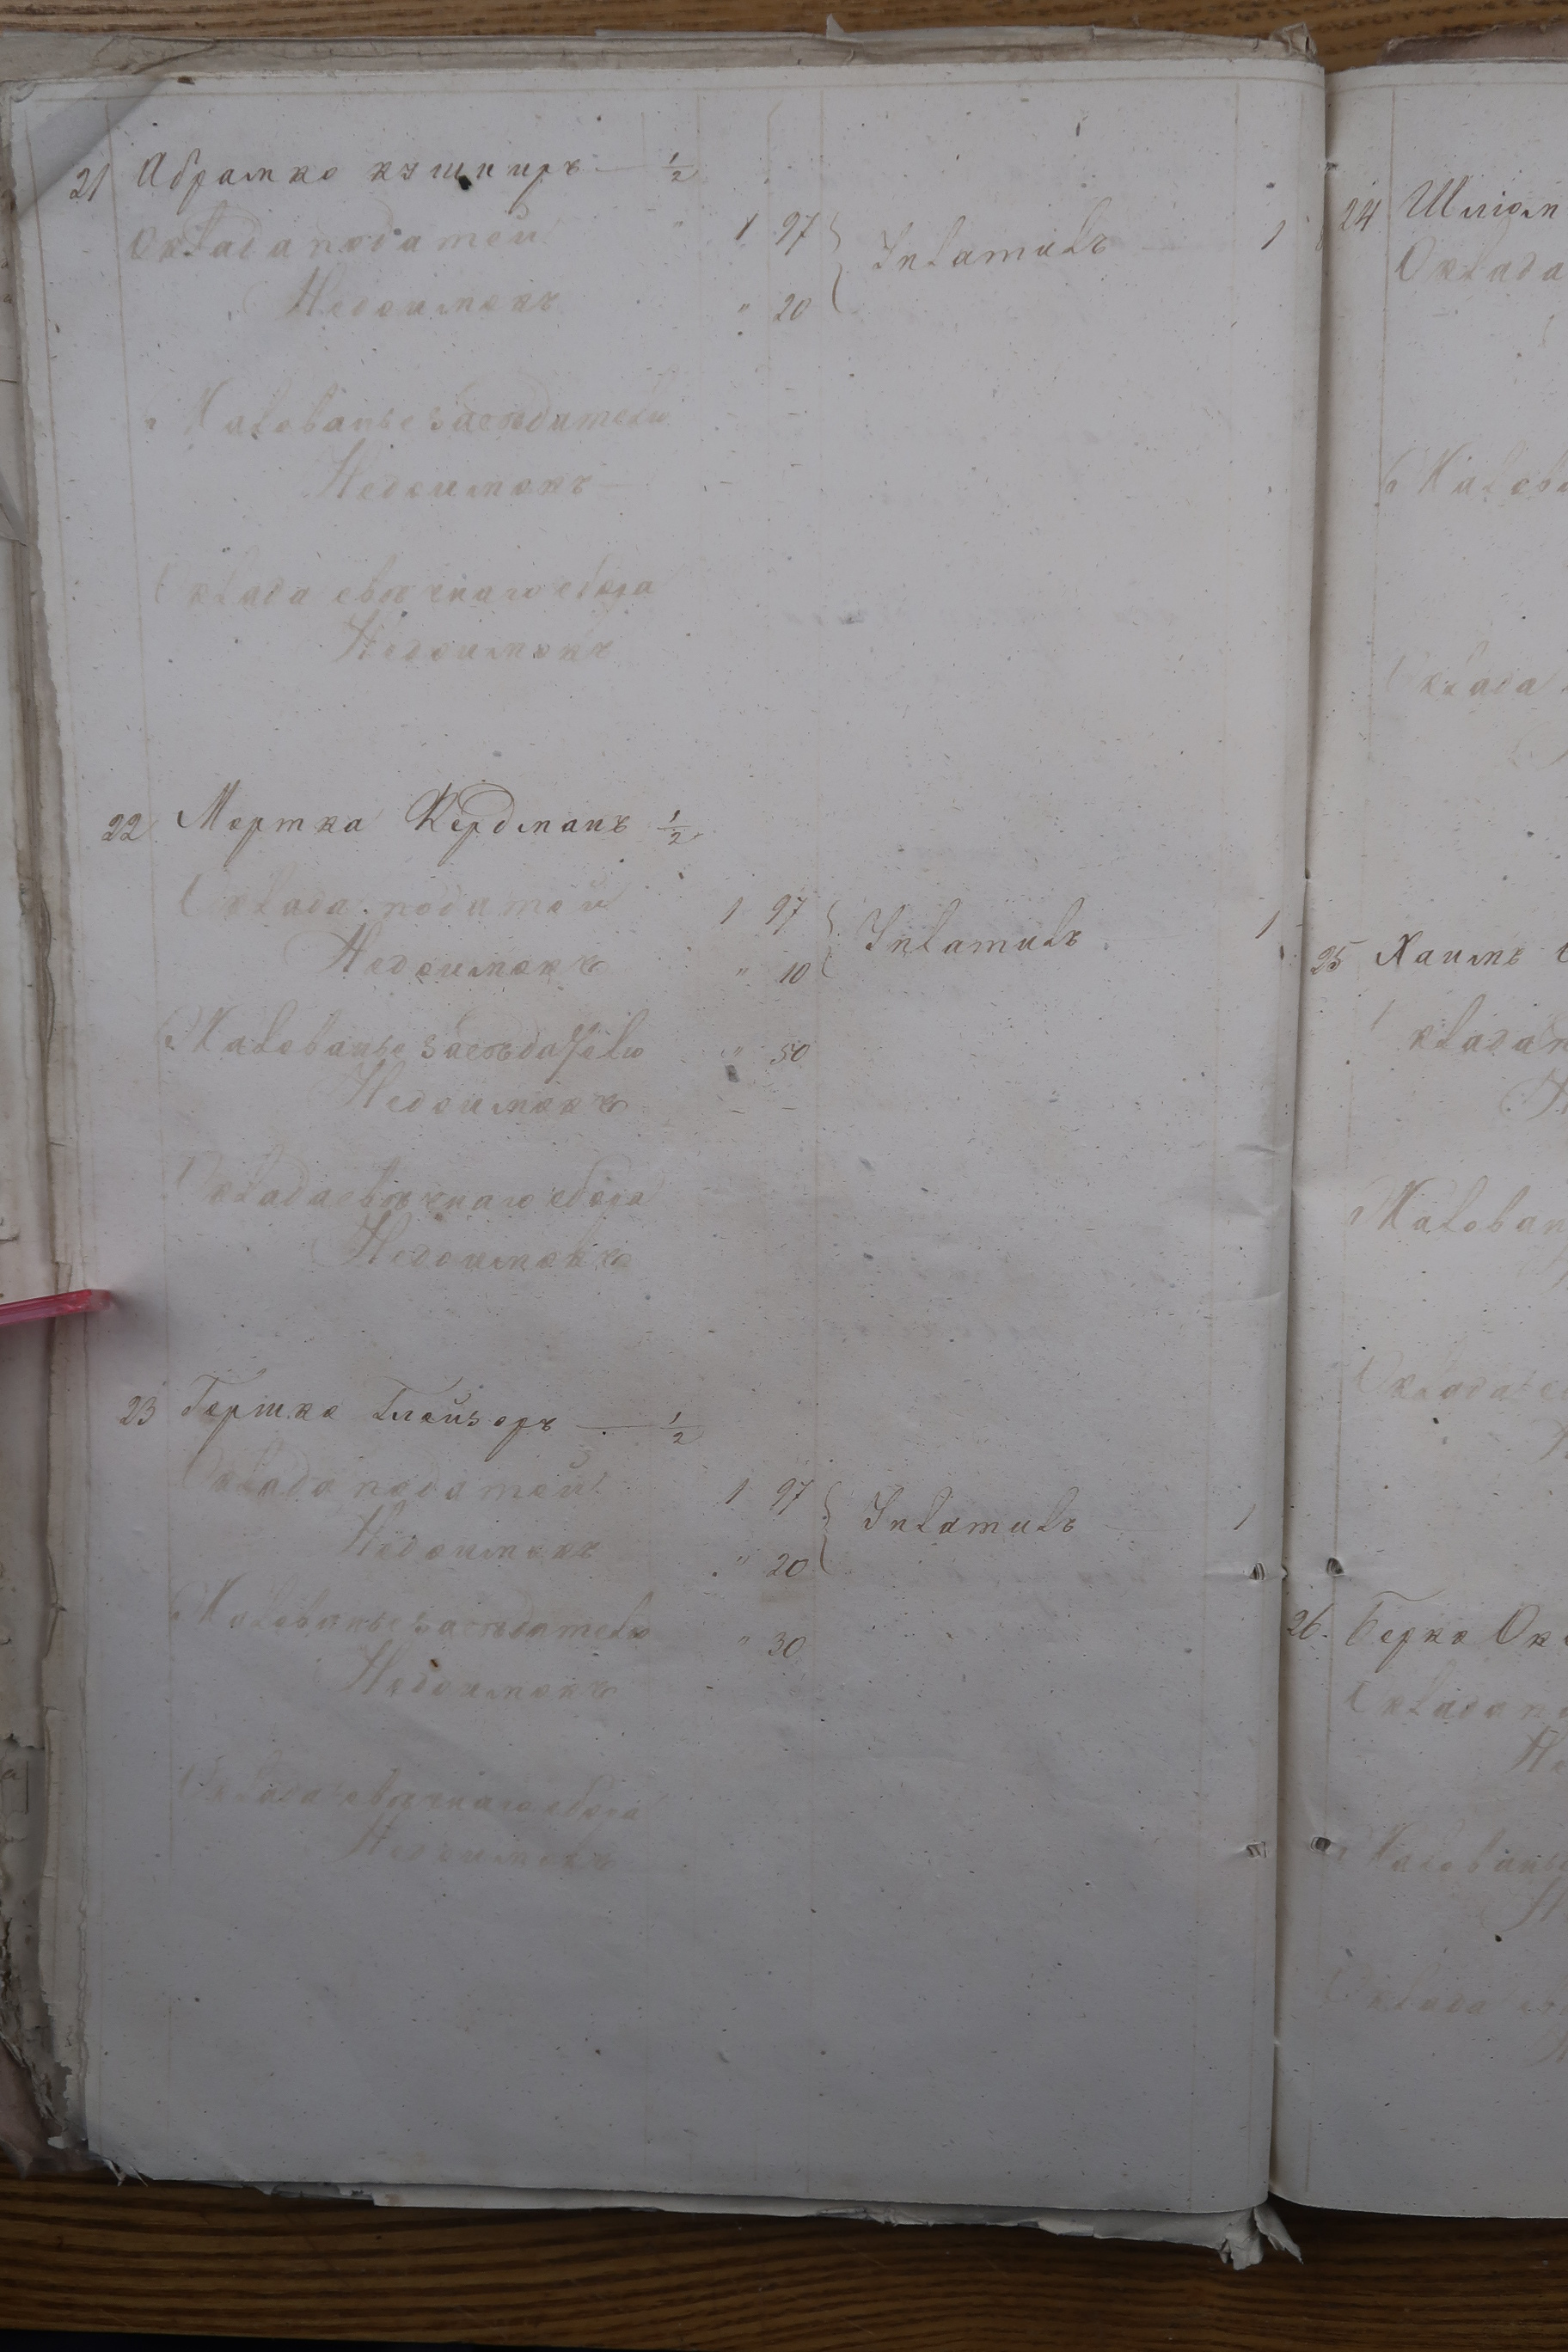 21 Абрамко кушниръ — 1/2
Оклада податей 1 97 } Уплатилъ 1
Недоимокъ " 20
Жалованье засѣдателю
Недоимокъ —
Оклада свѣчнаго сбора
Недоимокъ
22 Мортка Фердманъ 1/2
Оклада податей 1 97 } Уплатилъ 1
Недоимокъ " 10
Жалованье засѣдателю " 50
Недоимокъ — —
Оклада свѣчнаго сбора
Недоимокъ
23 Гершко Глейзеръ — 1/2
Оклада податей 1 97 } Уплатилъ 1
Недоимокъ " 20
Жалованье засѣдателю " 30
Недоимокъ
Оклада свѣчнаго сбора
Недоимокъ
24
Оклада
25 Хаимъ
26. Берко